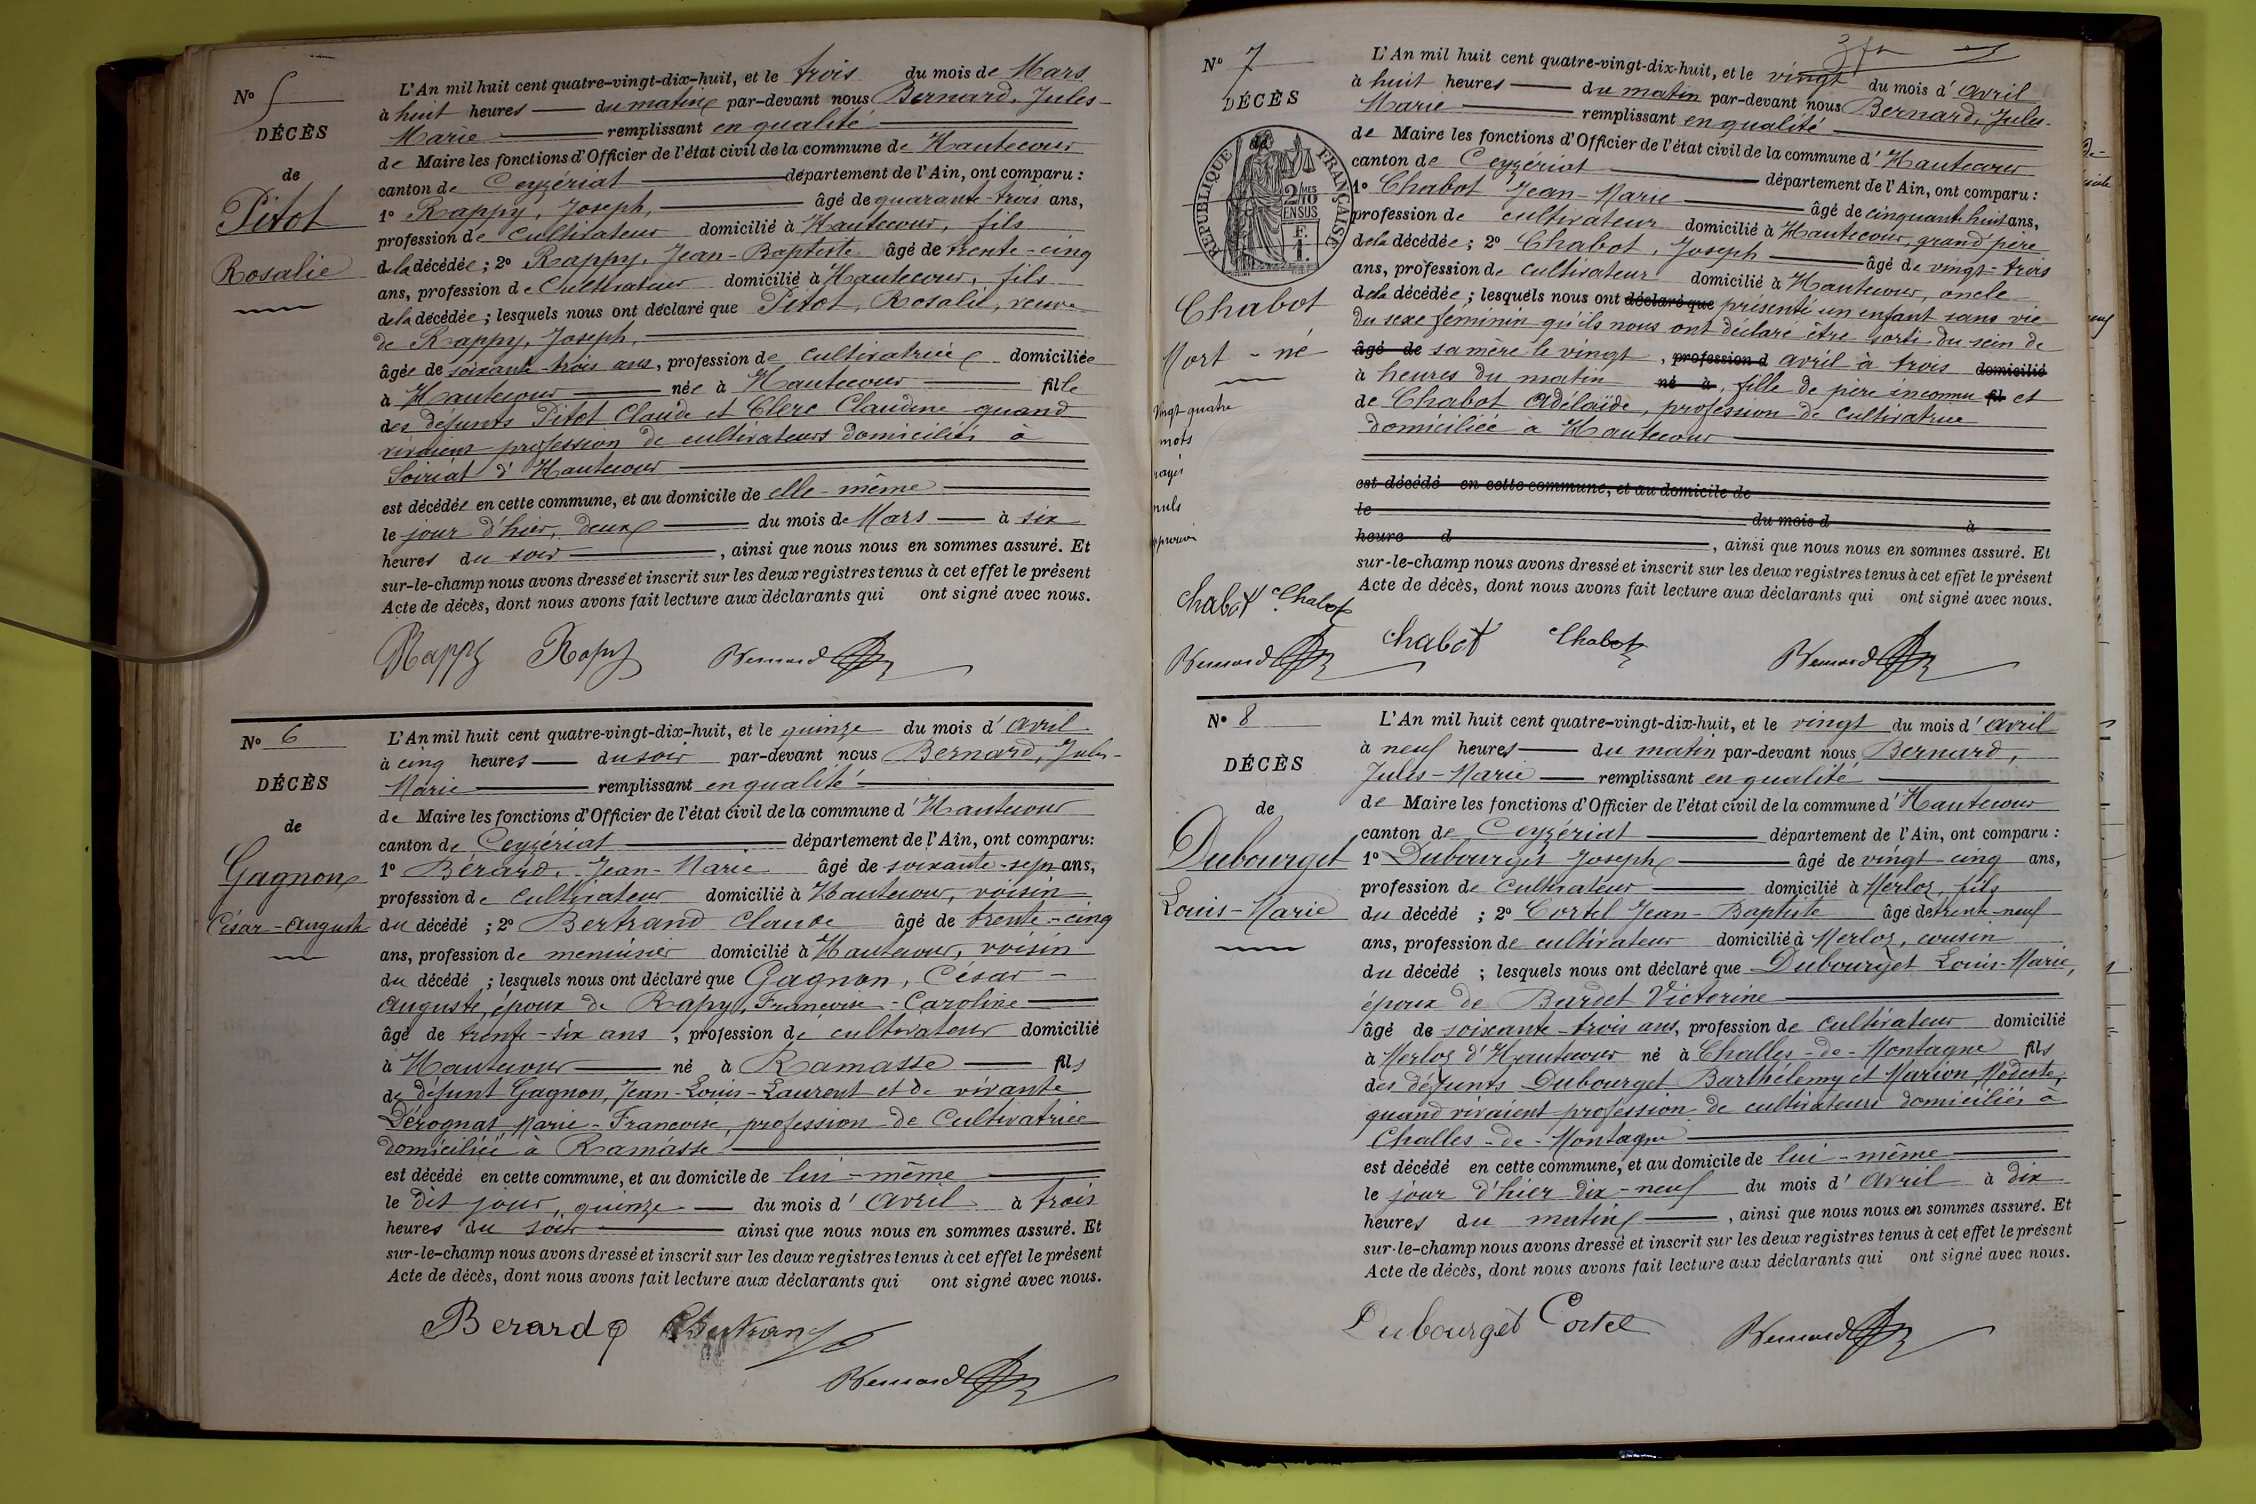 N° 5
DÉCÈS
de
Pitot
Rosalie
L'An mil huit cent quatre-vingt-dix-huit, et le trois du mois de Mars
à huit heures du matin par-devant nous Bernard, Jules-
Marie remplissant en qualité
de Maire les fonctions d'Officier de l'état civil de la commune de Hautecour
canton de Ceyzériat département de l'Ain, ont comparu :
1° Rappy, Joseph, âgé de quarante-trois ans,
profession de cultivateur domicilié à Hautecour, fils
de la décédée ; 2° Rappy, Jean-Baptiste âgé de trente-cinq
ans, profession de Cultivateur domicilié à Hautecour, fils
de la décédée ; lesquels nous ont déclaré que Pitot, Rosalie, veuve
de Rappy, Joseph,
âgée de soixante-trois ans, profession de cultivatrice domiciliée
à Hautecour née à Hautecour fille
des défunts Pitot Claude et Clerc Claudine quand
vivaient profession de cultivateurs domiciliés à
Soiriat d'Hautecour
est décédée en cette commune, et au domicile de elle-même
le jour d'hier, deux du mois de Mars à six
heures du soir , ainsi que nous nous en sommes assuré. Et
sur-le-champ nous avons dressé et inscrit sur les deux registres tenus à cet effet le présent
Acte de décès, dont nous avons fait lecture aux déclarants qui ont signé avec nous.
Rappy Rapy Bernard
N° 6
DÉCÈS
de
Gagnon
César-Auguste
L'An mil huit cent quatre-vingt-dix-huit, et le quinze du mois d'avril
à cinq heures du soir par-devant nous Bernard, Jules-
Marie remplissant en qualité
de Maire les fonctions d'Officier de l'état civil de la commune d'Hautecour
canton de Ceyzériat département de l'Ain, ont comparu:
1° Bérard, Jean-Marie âgé de soixante-sept ans,
profession de cultivateur domicilié à Hautecour, voisin
du décédé ; 2° Bertrand Claude âgé de trente-cinq
ans, profession de menuisier domicilié à Hautecour, voisin
du décédé ; lesquels nous ont déclaré que Gagnon, César-
Auguste, époux de Rapy, Françoise-Caroline
âgé de trente-six ans , profession de cultivateur domicilié
à Hautecour né à Ramasse fils
de défunt Gagnon, Jean-Louis-Laurent et de vivante
Dérognat Marie-Francoise, profession de Cultivatrice
domiciliée à Ramasse
est décédé en cette commune, et au domicile de lui-même
le dit jour, quinze du mois d'avril à trois
heures du soir ainsi que nous nous en sommes assuré. Et
sur-le-champ nous avons dressé et inscrit sur les deux registres tenus à cet effet le présent
Acte de décès, dont nous avons fait lecture aux déclarants qui ont signé avec nous.
Berard Bertrand
Bernard
N° 7
DÉCÈS
RÉPUBLIQUE FRANÇAISE
2/10 MES
EN SUS
F.
1.
Chabot
Mort-né
Vingt-quatre
mots
rayés
nuls
approuvé
Chabot Chabot
Bernard
L'An mil huit cent quatre-vingt-dix-huit, et le vingt du mois d'avril
à huit heures du matin par-devant nous Bernard, Jules-
Marie remplissant en qualité
de Maire les fonctions d'Officier de l'état civil de la commune d'Hautecour
canton de Ceyzériat département de l'Ain, ont comparu :
1° Chabot Jean-Marie âgé de cinquante huit ans,
profession de cultivateur domicilié à Hautecour, grand père
de la décédée ; 2° Chabot, Joseph âgé de vingt-trois
ans, profession de cultivateur domicilié à Hautecour, oncle
de la décédée ; lesquels nous ont déclaré que présenté un enfant sans vie
du sexe feminin qu'ils nous ont déclaré être sorti du sein de
âgé de sa mère le vingt , profession d avril à trois domicilié
à heures du matin né à , fille de père inconnu fil et
de Chabot Adélaïde, profession de cultivatrice
domiciliée à Hautecour
est décédé en cette commune, et au domicile de
le du mois d à
heure d , ainsi que nous nous en sommes assuré. Et
sur-le-champ nous avons dressé et inscrit sur les deux registres tenus à cet effet le présent
Acte de décès, dont nous avons fait lecture aux déclarants qui ont signé avec nous.
Chabot Chabot Bernard
N° 8
DÉCÈS
de
Dubourget
Louis-Marie
L'An mil huit cent quatre-vingt-dix-huit, et le vingt du mois d'avril
à neuf heures du matin par-devant nous Bernard,
Jules-Marie remplissant en qualité
de Maire les fonctions d'Officier de l'état civil de la commune d'Hautecour
canton de Ceyzériat département de l'Ain, ont comparu :
1° Dubourget Joseph âgé de vingt-cinq ans,
profession de cultivateur domicilié à Merloz, fils
du décédé ; 2° Cortel Jean-Baptiste âgé de trente-neuf
ans, profession de cultivateur domicilié à Merloz, cousin
du décédé ; lesquels nous ont déclaré que Dubourget Louis-Marie,
époux de Burdet Victorine
âgé de soixante-trois ans, profession de cultivateur domicilié
à Merloz d'Hautecour né à Challes-de-Montagne fils
des défunts Dubourget Barthélemy et Marion Modeste,
quand vivaient profession de cultivateurs domiciliés à
Challes-de-Montagne
est décédé en cette commune, et au domicile de lui-même
le jour d'hier dix-neuf du mois d'avril à dix
heures du matin , ainsi que nous nous en sommes assuré. Et
sur-le-champ nous avons dressé et inscrit sur les deux registres tenus à cet effet le présent
Acte de décès, dont nous avons fait lecture aux déclarants qui ont signé avec nous.
Dubourget Cortel Bernard